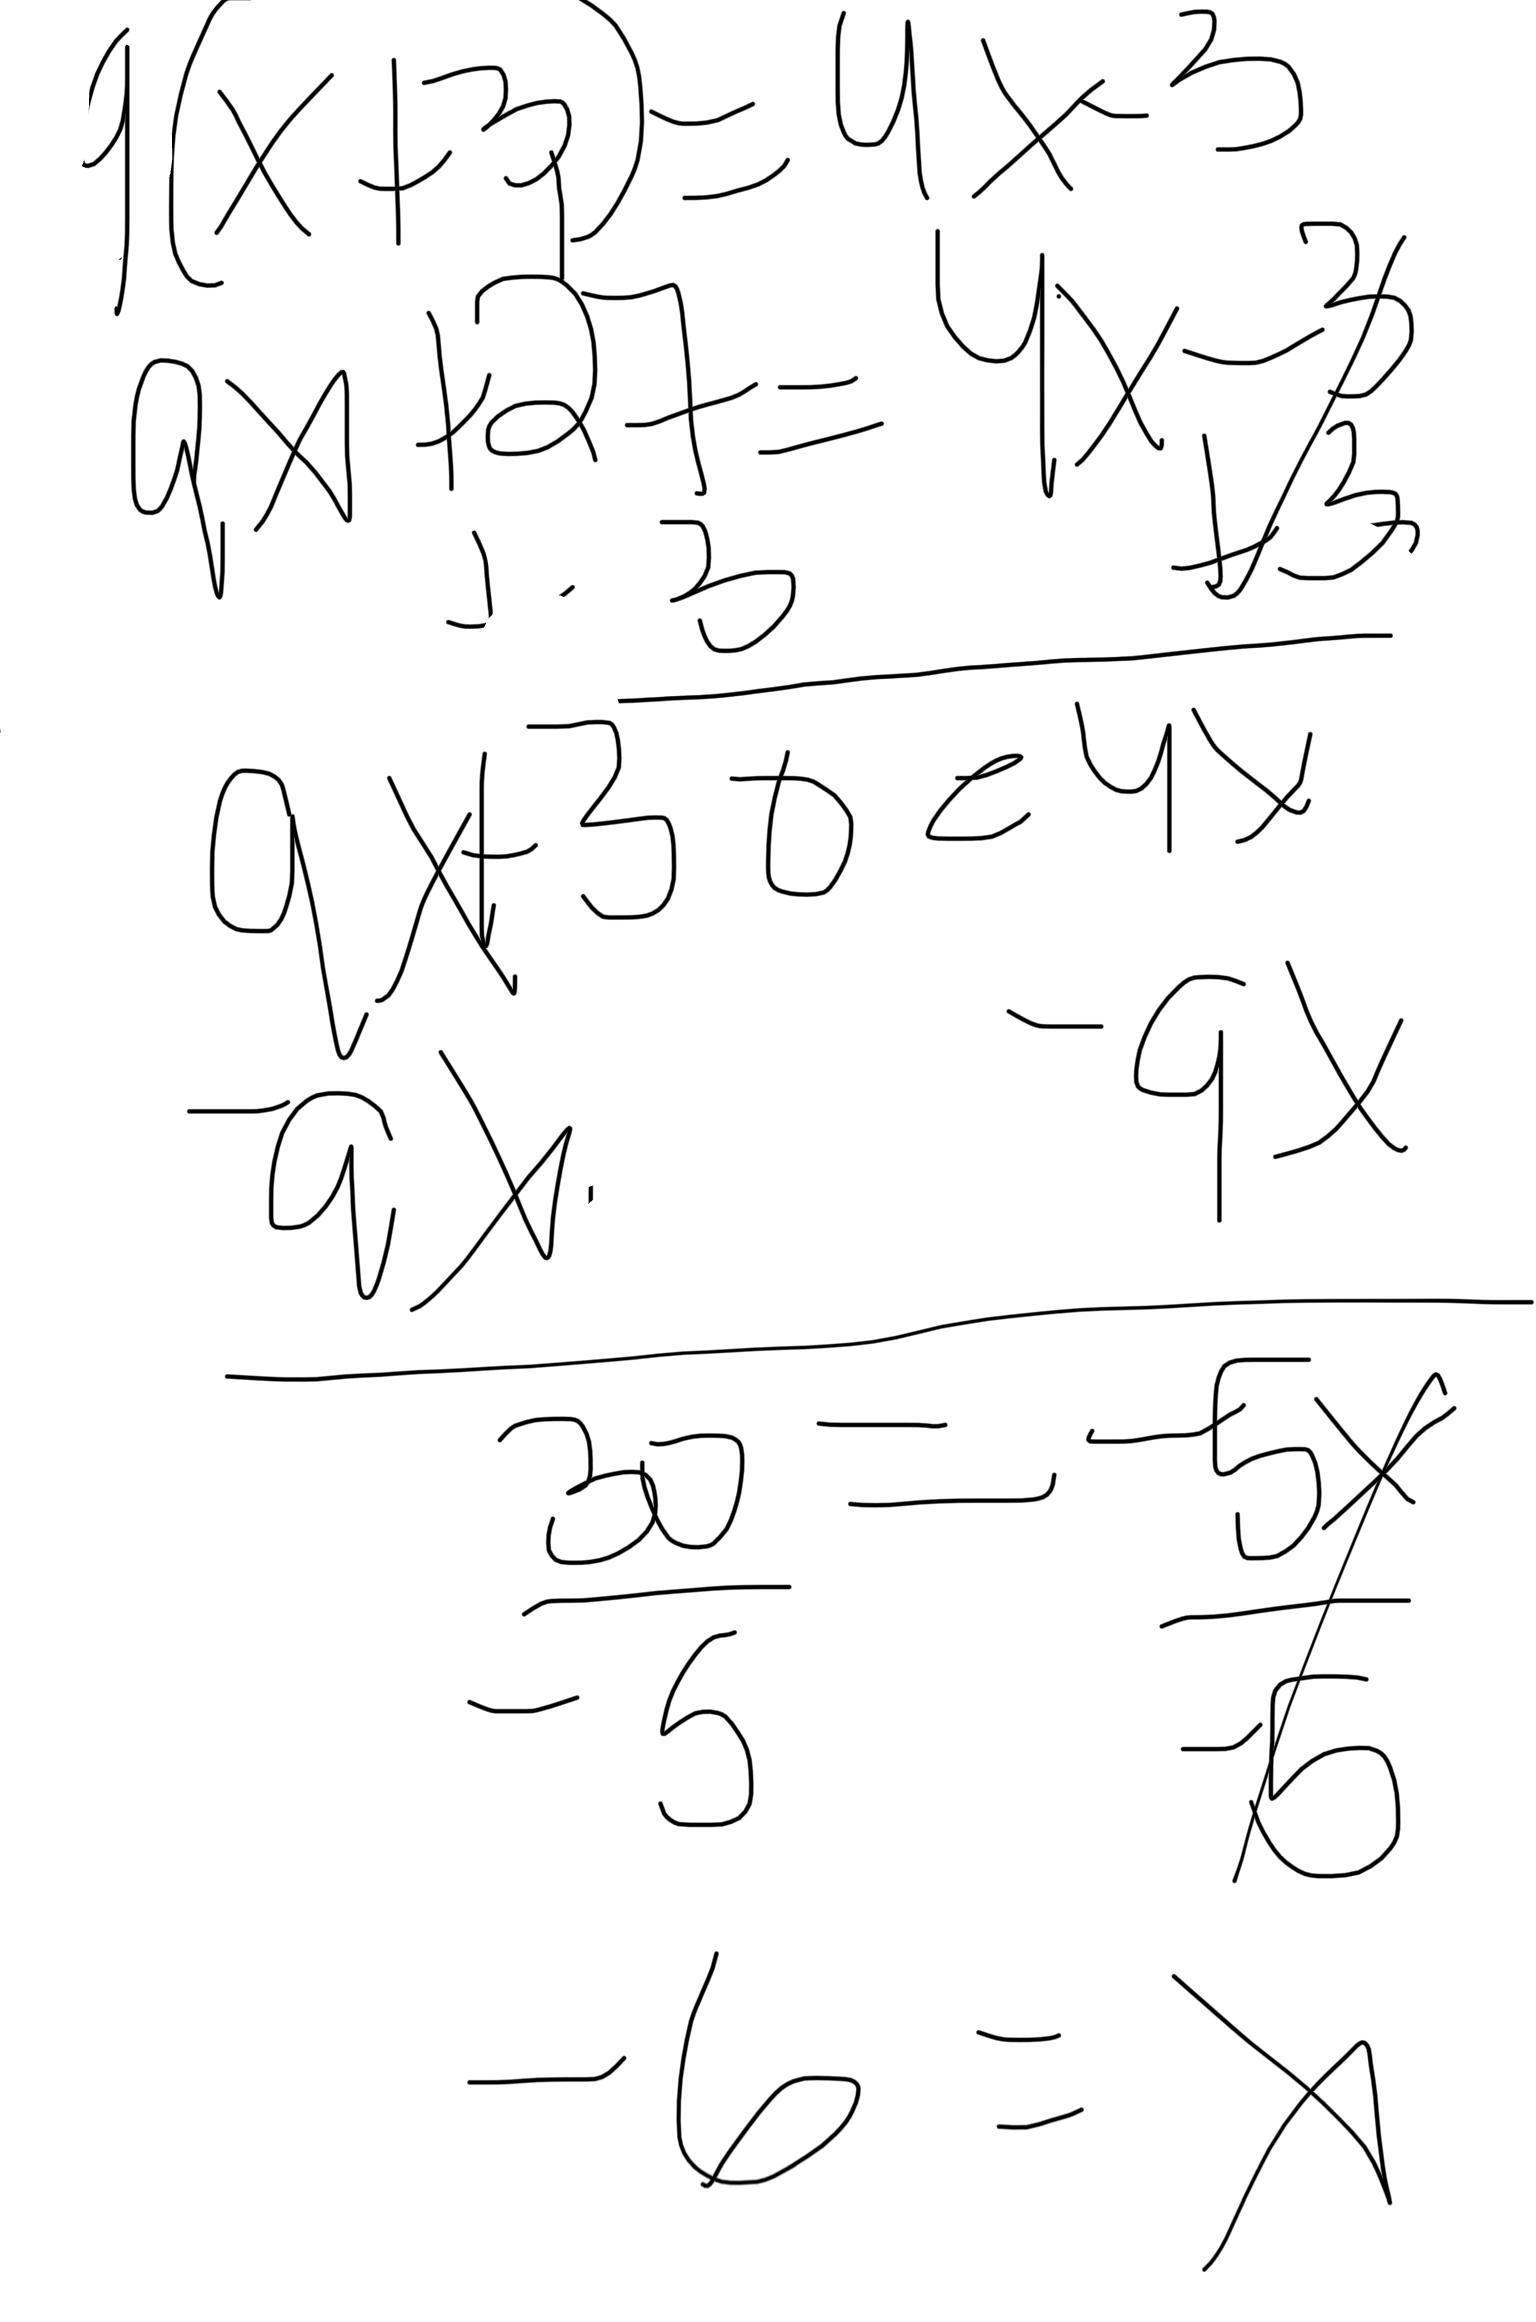 9(x+3)=4x-3
9x+27=4x-3
+3 +3
9x+30=4x
-9x -9x
30 = -5x
-5 -5
-6 = x